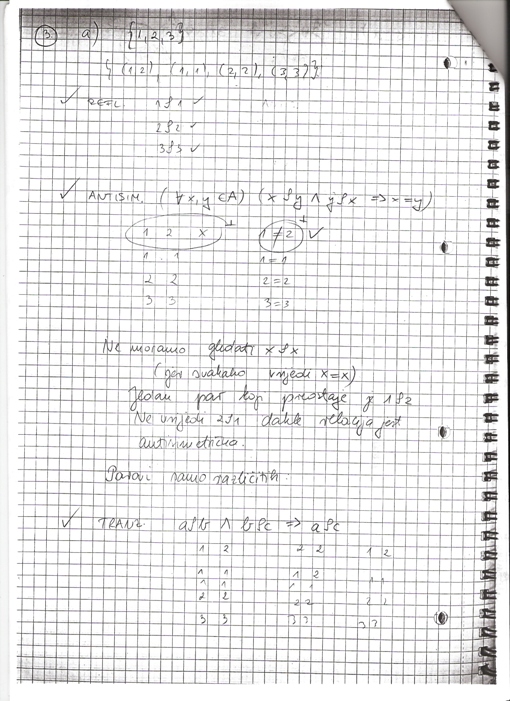 3 a) {1,2,3}
{(1,2), (1,1), (2,2), (3,3)}
✓ REFL. 1ρ1 ✓
2ρ2 ✓
3ρ3 ✓
✓ ANTISIM. (∀x,y ∈A) (xρy ∧ yρx ⇒ x=y)
1 2 x ⊥ 1≠2 ⊥ ✓
1 1 1=1
2 2 2=2
3 3 3=3
Ne moramo gledati xρx
(jer svakako vrijedi x=x)
Jedan par koji preostaje je 1ρ2
Ne vrijedi 2ρ1 dakle relacija jest
antisimetrična.
Parovi samo različitih.
✓ TRANZ. aρb ∧ bρc ⇒ aρc
1 2 2 2 1 2
1 1 1 2
1 1 1 1 1 1
2 2 2 2 2 2
3 3 3 3 3 3